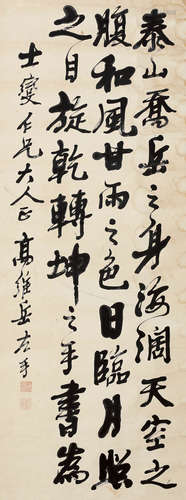 泰山喬岳之身海阔天空之
腹和風甘雨之色日臨月照
之目旋乾轉坤之手書為
士燮仁兄大人正 高維岳左手